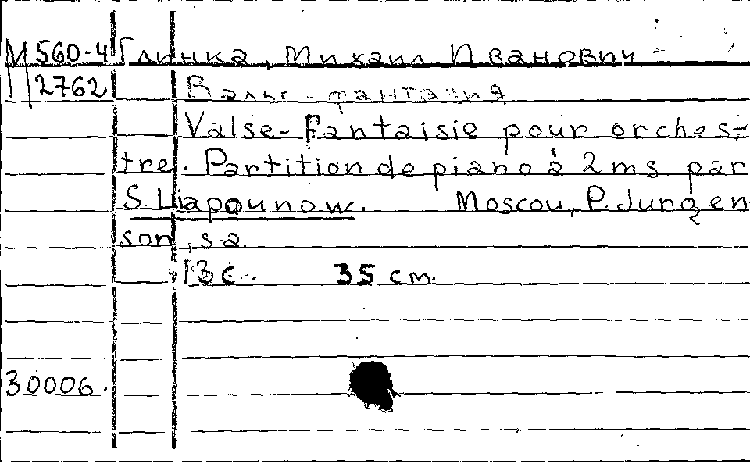 М 560-4 Глинка, Михаил Иванович
2762 Вальс-фантазия
Valse-Fantaisie pour orches-
tre. Partition de piano à 2 ms par
S. Liapounow. Moscou, P. Jurgen
son, s a.
13 c. 35 cm.
30006.